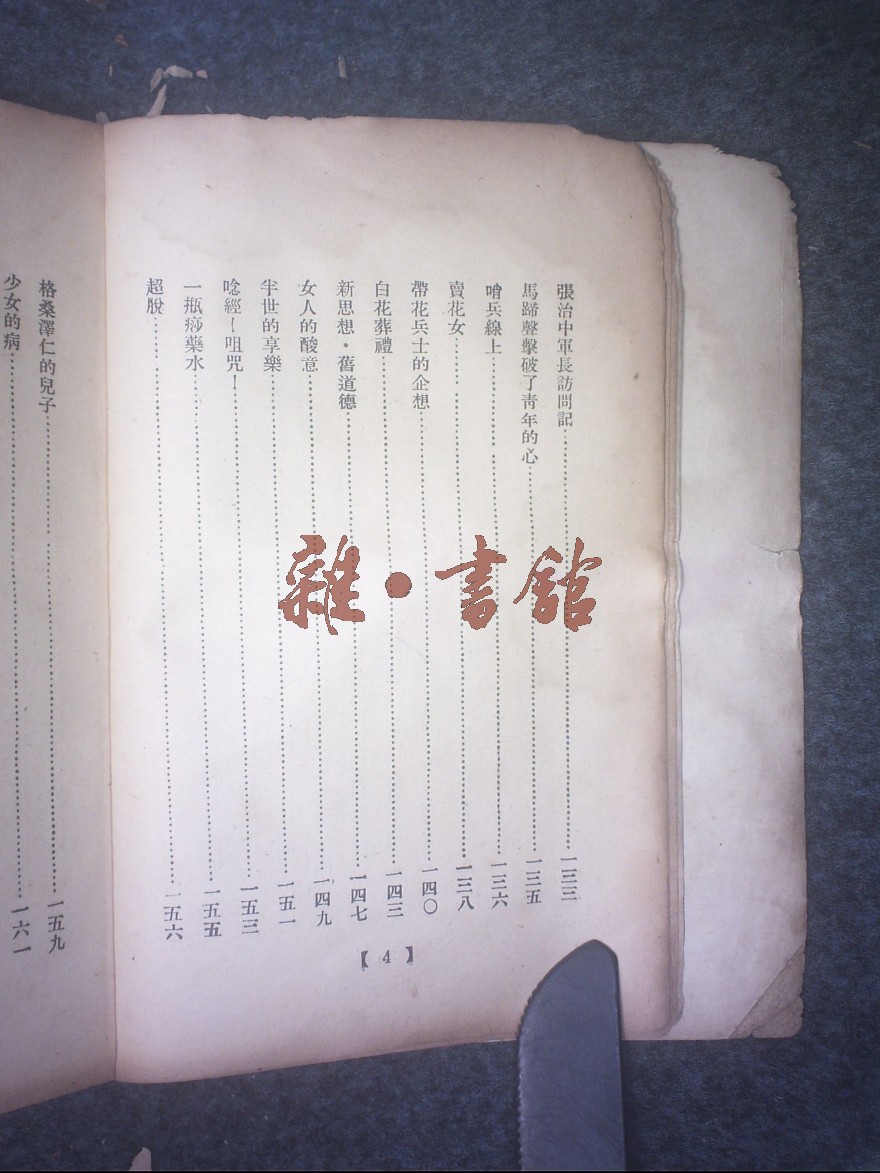 張治中軍長訪問記……一三三
馬蹄聲擊破了靑年的心……一三五
哨兵線上……一三六
賣花女……一三八
帶花兵士的企想……一四〇
白花葬禮……一四三
新思想·舊道德……一四七
女人的酸意……一四九
半世的享樂……一五一
唸經——咀咒！……一五三
一瓶痧藥水……一五五
超脫……一五六
【4】
格桑澤仁的兒子……一五九
少女的病……一六一
雜·書館